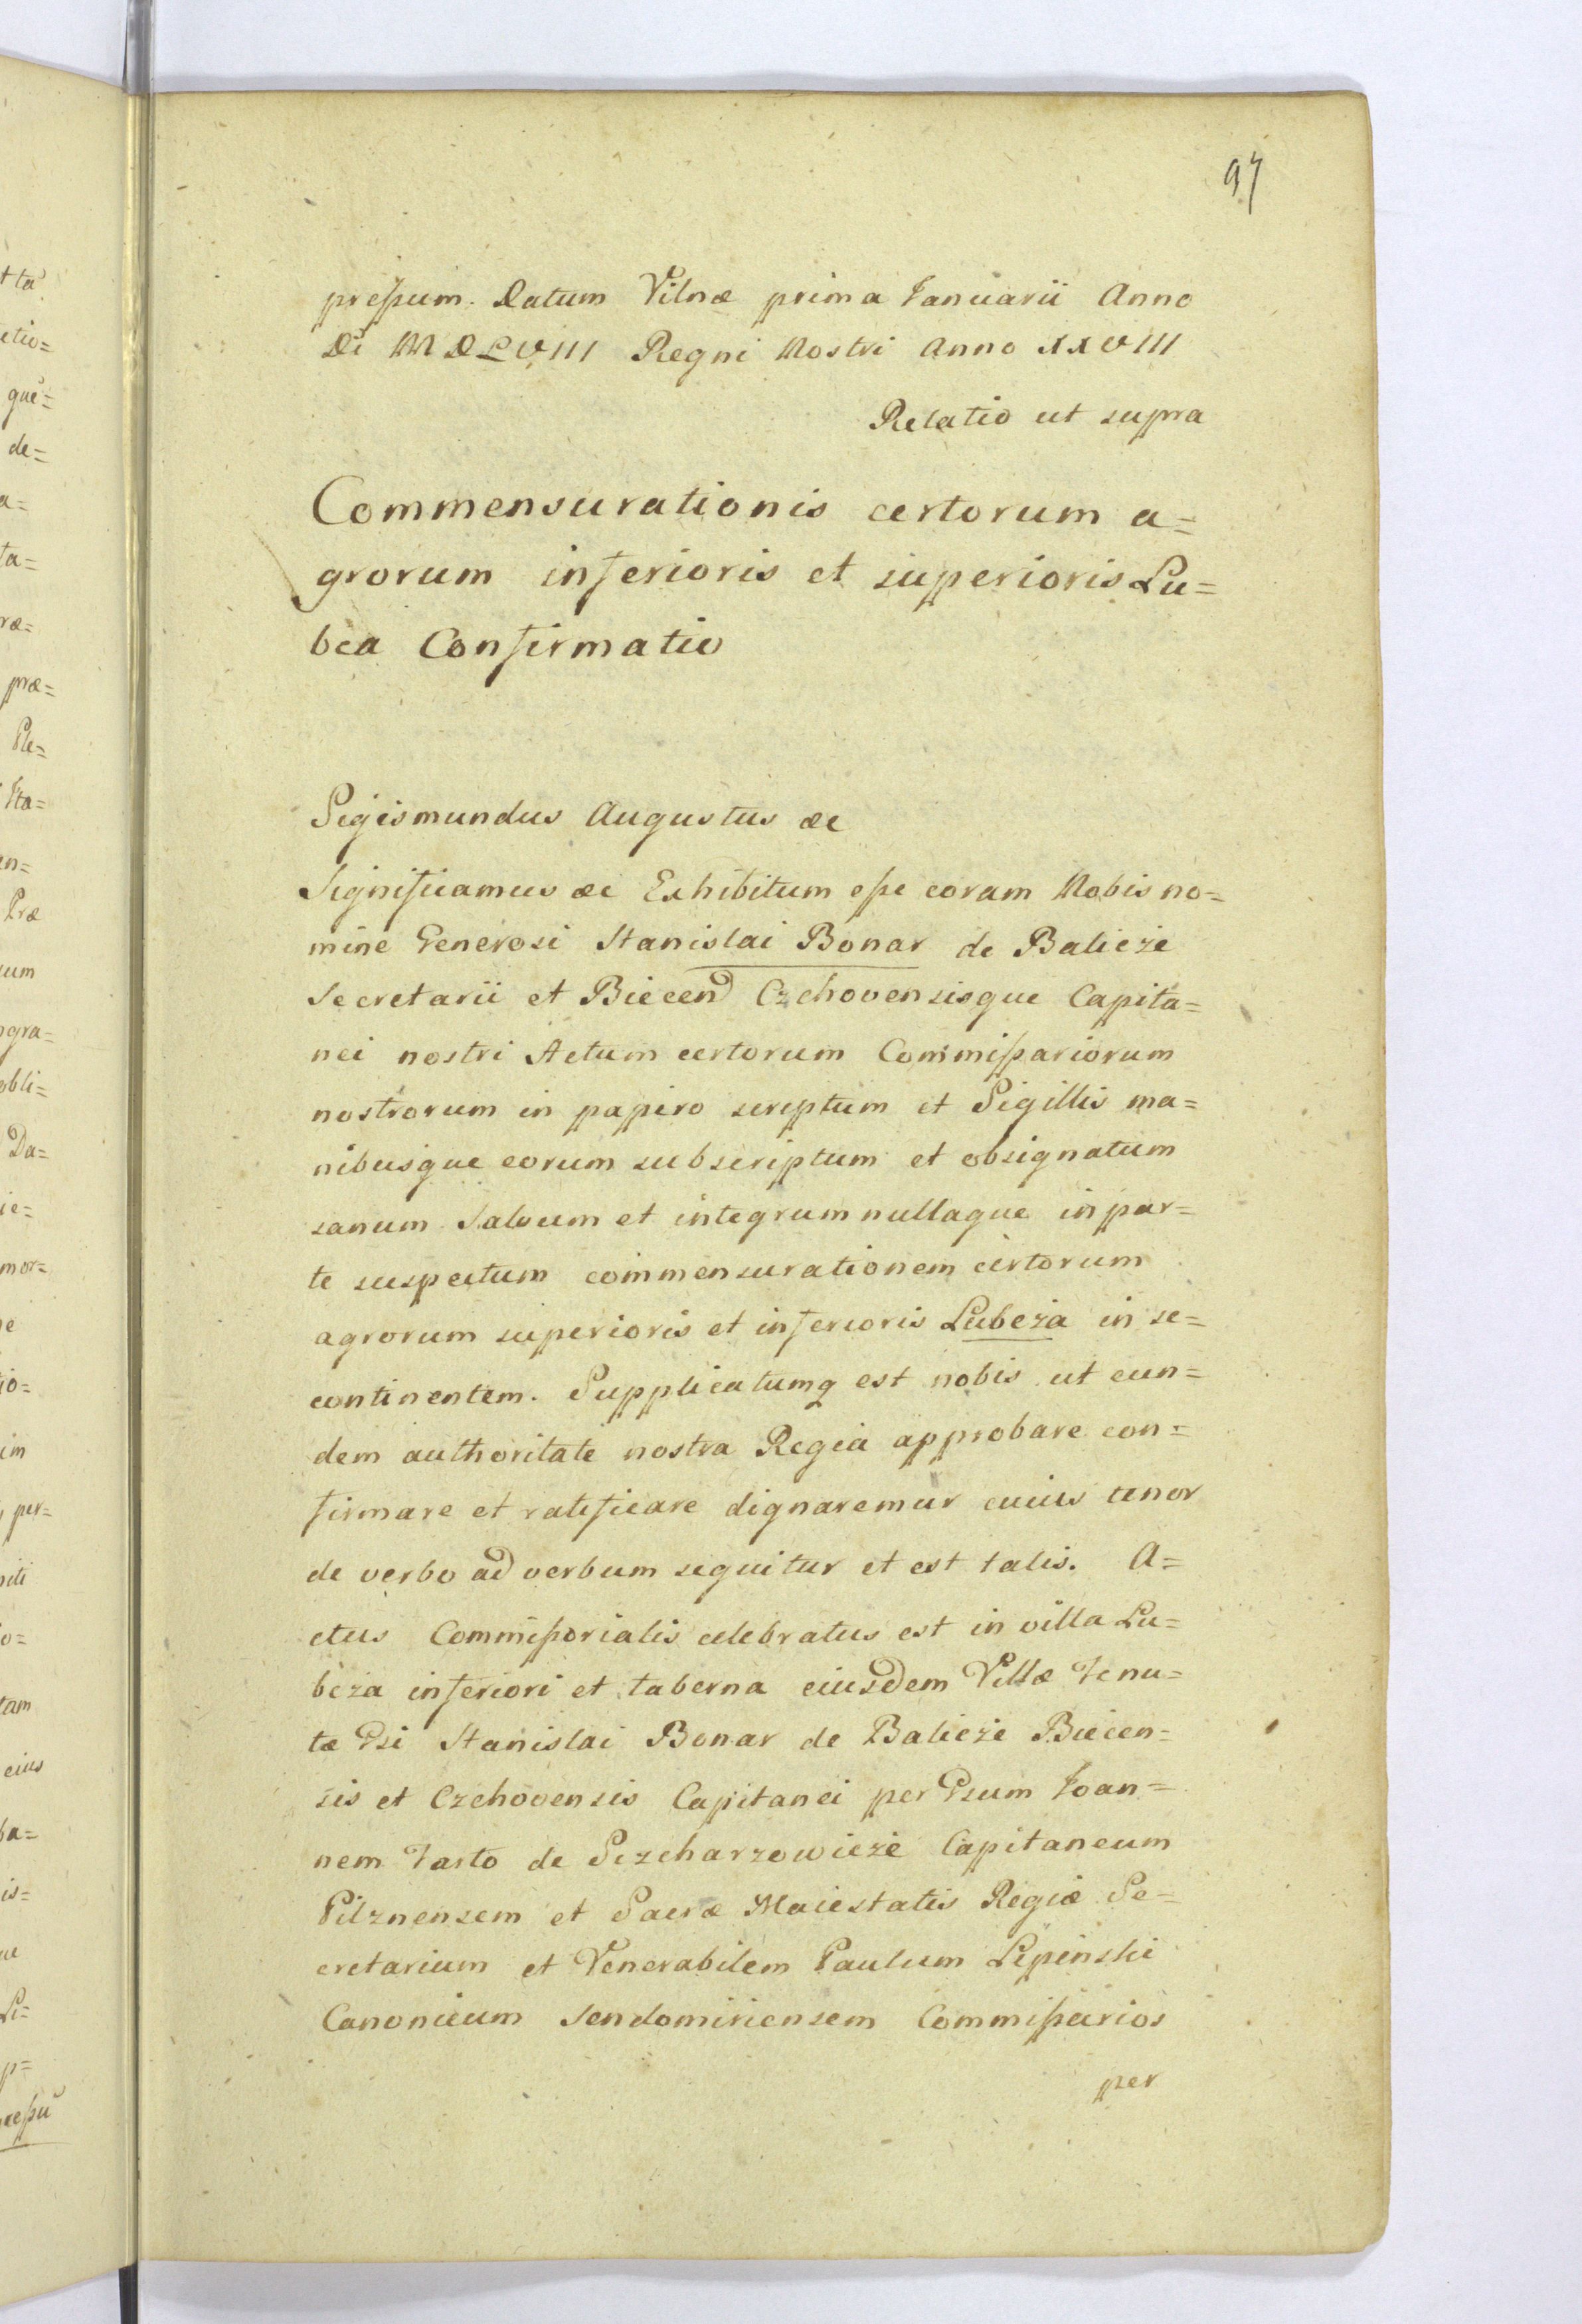 97
pressum. Datum Vilnæ prima Ianuarii Anno
Di MDLVIII Regni Nostri Anno XXVIII
Relatio ut supra
Commensurationis certorum a=
grorum inferioris et superioris Lu=
bca Confirmatio
Sigismundus Augustus æc
Significamus æc Exhibitum esse coram Nobis no=
mine Generosi Stanislai Bonar de Balicze
Secretarii et Biecen Czchovensisque Capita=
nei nostri Actum certorum Commissariorum
nostrorum in papiro scriptum et Sigillis ma=
nibusque eorum subscriptum et obsignatum
sanum Salvum et integrum nullaque in par=
te suspectum commensurationem certorum
agrorum superioris et inferioris Lubcza in se=
continentem. Supplicatumq est nobis ut eun=
dem authoritate nostra Regia approbare con=
firmare et ratificare dignaremur cuius tenor
de verbo ad verbum sequitur et est talis. A=
ctus Commissorialis celebratus est in villa Lu=
bcza inferiori et taberna eiusdem Villæ Tenu=
tæ Gsi Stanislai Bonar de Balicze Biecen=
sis et Czchovensis Capitanei per Gsum Ioan=
nem Tarlo de Sczcharzowicze Capitaneum
Pilznensem et Sacræ Maiestatis Regiæ Se=
cretarium et Venerabilem Paulum Lipinski
Canonicum Sendomiriensem Commissarios
per